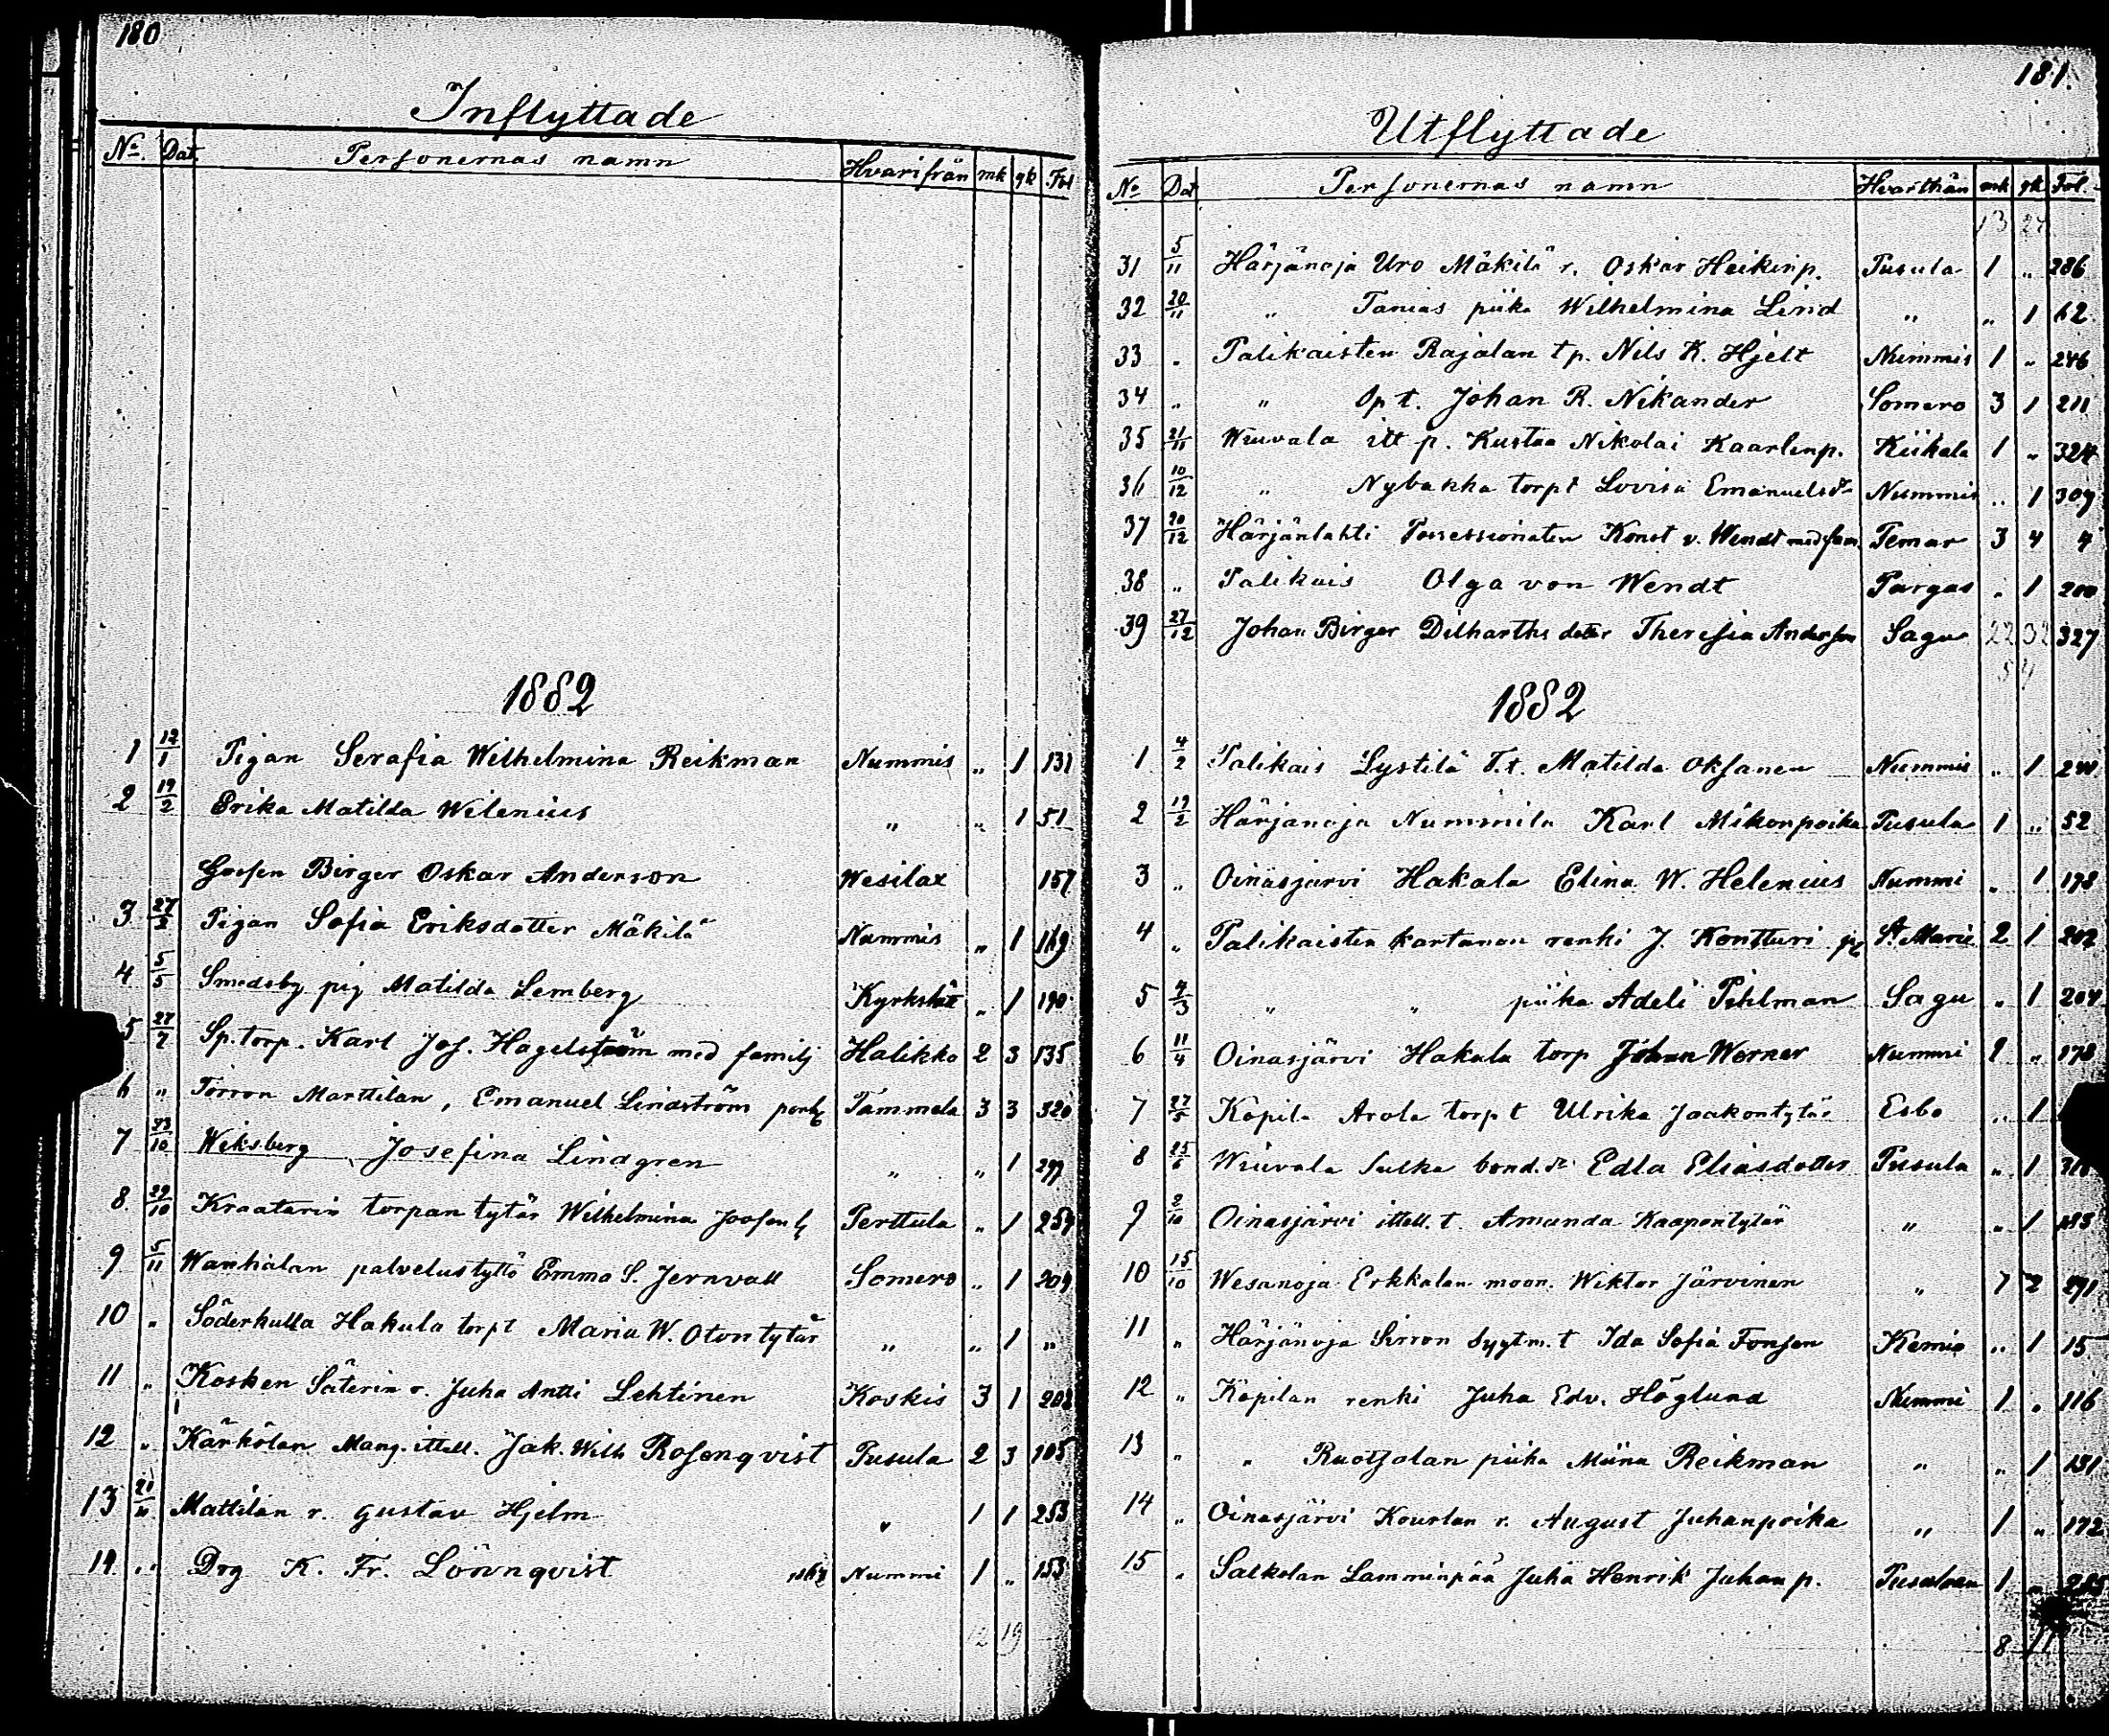 180
Inflyttade
No. Dat. Personernas namn Hvarifrån mk qk Fol
1882
1 12/1 Pigan Serafia Wilhelmina Reikman Nummis „ 1 131
2 19/2 Erika Matilda Wilenius „ „ 1 51
Gossen Birger Oskar Anderson Wesilax 157
3 27/2 Pigan Sofia Eriksdotter Mäkilä Nummis „ 1 169
4 5/5 Smedsby pig Matilda Lemberg Kyrkslätt „ 1 190
5 27/7 Sp. torp. Karl Jos. Hagelström med familj Halikko 2 3 135
6 „ Torron Marttilan, Emanuel Lindström Tammela 3 3 320
7 23/10 Wiksberg Josefina Lindgren „ „ 1 297
8 29/10 Kraatarin torpan tytär Wilhelmina Perttula „ 1 259
9 5/11 Wanhalan palvelustyttö Emma S. Jernvall Somero „ 1 209
10 „ Söderkulla Hakula torpt Maria W. Otontytär „ „ 1 „
11 „ Kosken Säterin r. Juha Antti Lehtinen Koskis 3 1 208
12 „ Kärkölan Mang. ittell. Jak. Wilh Rosenqvist Pusula 2 3 105
13 21/11 Mattilan r. Gustav Hjelm „ 1 1 253
14 „ Drg K. Fr. Lönnqvist Nummi 1 „ 153
12 19
181.
Utflyttade
No Dat Personernas namn Hvarthän mk qk Fol.
13 24
31 5/11 Härjänoja Uro Mäkilä r. Oskar Heikinp. Pusula 1 „ 286
32 20/11 „ Tanias piika Wilhelmina Lind „ „ 1 62
33 „ Palikaisten Rajalan tp. Nils K. Hjelt Nummis 1 „ 246
34 „ „ Op t. Johan R. Nikander Somero 3 1 211
35 21/11 Wiuvala itt p. Kustaa Nikolai Kaarlenp. Kiikala 1 „ 324
36 10/12 „ Nybakka torpt Lovisa Emanuelsdr Nummis „ 1 309
37 20/12 Härjänlahti Possessionaten Konst v. Wendt med fam. Pemar 3 4 4
38 „ Palikais Olga von Wendt Pargas „ 1 200
39 27/12 Johan Birger Dilharths dotter Theresia Anderson Sagu 22 32 327
54
1882
1 4/2 Palikais Lystilä T.t. Matilda Oksanen Nummis „ 1
2 19/2 Härjänoja Nummila Karl Mikonpoika Pusula 1 „ 52
3 „ Oinasjärvi Hakala Elina W. Helenius Nummi „ 1 178
4 „ Palikaisten kartanon renki J. Kontturi St Marie 2 1 202
5 4/3 „ „ piika Adeli Pihlman Sagu „ 1 204
6 11/4 Oinasjärvi Hakala torp Johan Werner Nummi 1 „ 178
7 27/5 Kopila Arola torpt Ulrika Jaakontytär Esbo „ 1
8 25/6 Wiuvala Sulka bond. dr Edla Eliasdotter Pusula „ 1
9 2/10 Oinasjärvi ittell. t. Amanda Kaapontytär „ „ 1 183
10 15/10 Wesanoja Erkkalan moon. Wiktor Järvinen „ 7 2 291
11 „ Härjänoja Sirron Syytm. t Ida Sofia Fonsen Kemio „ 1 15
12 „ Kopilan renki Juha Edv. Höglund Nummi 1 „ 116
13 „ „ Ruotsalan piika Miina Reikman „ „ 1 131
14 „ Oinasjärvi Kourlan r. August Juhanpoika „ 1 „ 172
15 „ Salkolan Lamminpää Juha Henrik Juhan p. Pusulaan 1 „ 285
8 11